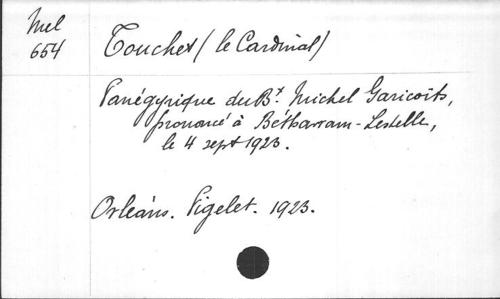 Mel
654
Touchet (le Cardinal)
Panégyrique du Bx. Michel Garicoïts,
prononcé à Bétharram-Lestelle,
le 4 sept 1923.
Orléans. Pigelet. 1923.